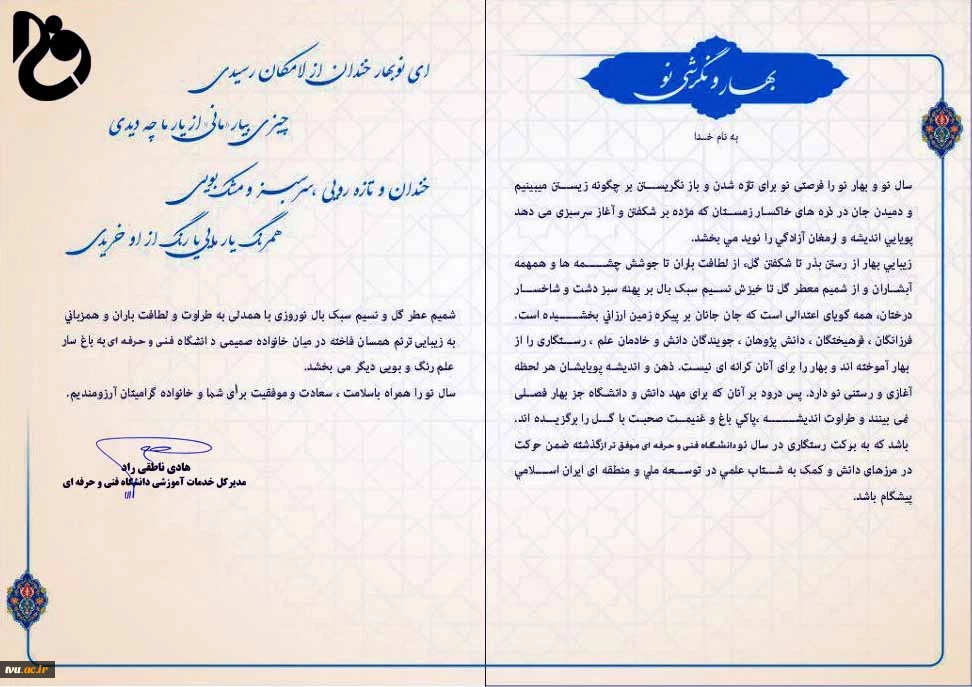 بهار و نگرشی نو
به نام خدا
سال نو و بهار نو را فرصتی نو برای تازه شدن و باز نگریستن بر چگونه زیستن میبینیم
و دمیدن جان در ذره های خاکسار زمستان که مژده بر شکفتن و آغاز سرسبزی می دهد
پویایی اندیشه و ارمغان آزادگی را نوید می بخشد.
زیبایی بهار از رستن بذر تا شکفتن گل، از لطافت باران تا جوشش چشمه ها و همهمه
آبشاران و از شمیم معطر گل تا خیزش نسیم سبک بال بر پهنه سبز دشت و شاخسار
درختان، همه گویای اعتدالی است که جان جانان بر پیکره زمین ارزانی بخشیده است.
فرزانگان ، فرهیختگان ، دانش پژوهان ، جویندگان دانش و خادمان علم ، رستگاری را از
بهار آموخته اند و بهار را برای آنان کرانه ای نیست. ذهن و اندیشه پویایشان هر لحظه
آغازی و رستنی نو دارد. پس درود بر آنان که برای مهد دانش و دانشگاه جز بهار فصلی
نمی بینند و طراوت اندیشه ،پاکی باغ و غنیمت صحبت با گل را برگزیده اند.
باشد که به برکت رستگاری در سال نو دانشگاه فنی و حرفه ای موفق تر ازگذشته ضمن حرکت
در مرزهای دانش و کمک به شتاب علمی در توسعه ملی و منطقه ای ایران اسلامی
پیشگام باشد.
ای نوبهار خندان از لامکان رسیدی
چیزی بیار «مانی» از یار ما چه دیدی
خندان و تازه رویی ،سرسبز و مشک بویی
همرنگ یار مایی یا رنگ از او خریدی
شمیم عطر گل و نسیم سبک بال نوروزی با همدلی به طراوت و لطافت باران و همزبانی
به زیبایی ترنم همسان فاخته در میان خانواده صمیمی دانشگاه فنی و حرفه ای به باغ سار
علم رنگ و بویی دیگر می بخشد.
سال نو را همراه باسلامت ، سعادت و موفقیت برای شما و خانواده گرامیتان آرزومندیم.
هادی ناطقی راد
مدیرکل خدمات آموزشی دانشگاه فنی و حرفه ای
tvu.ac.ir